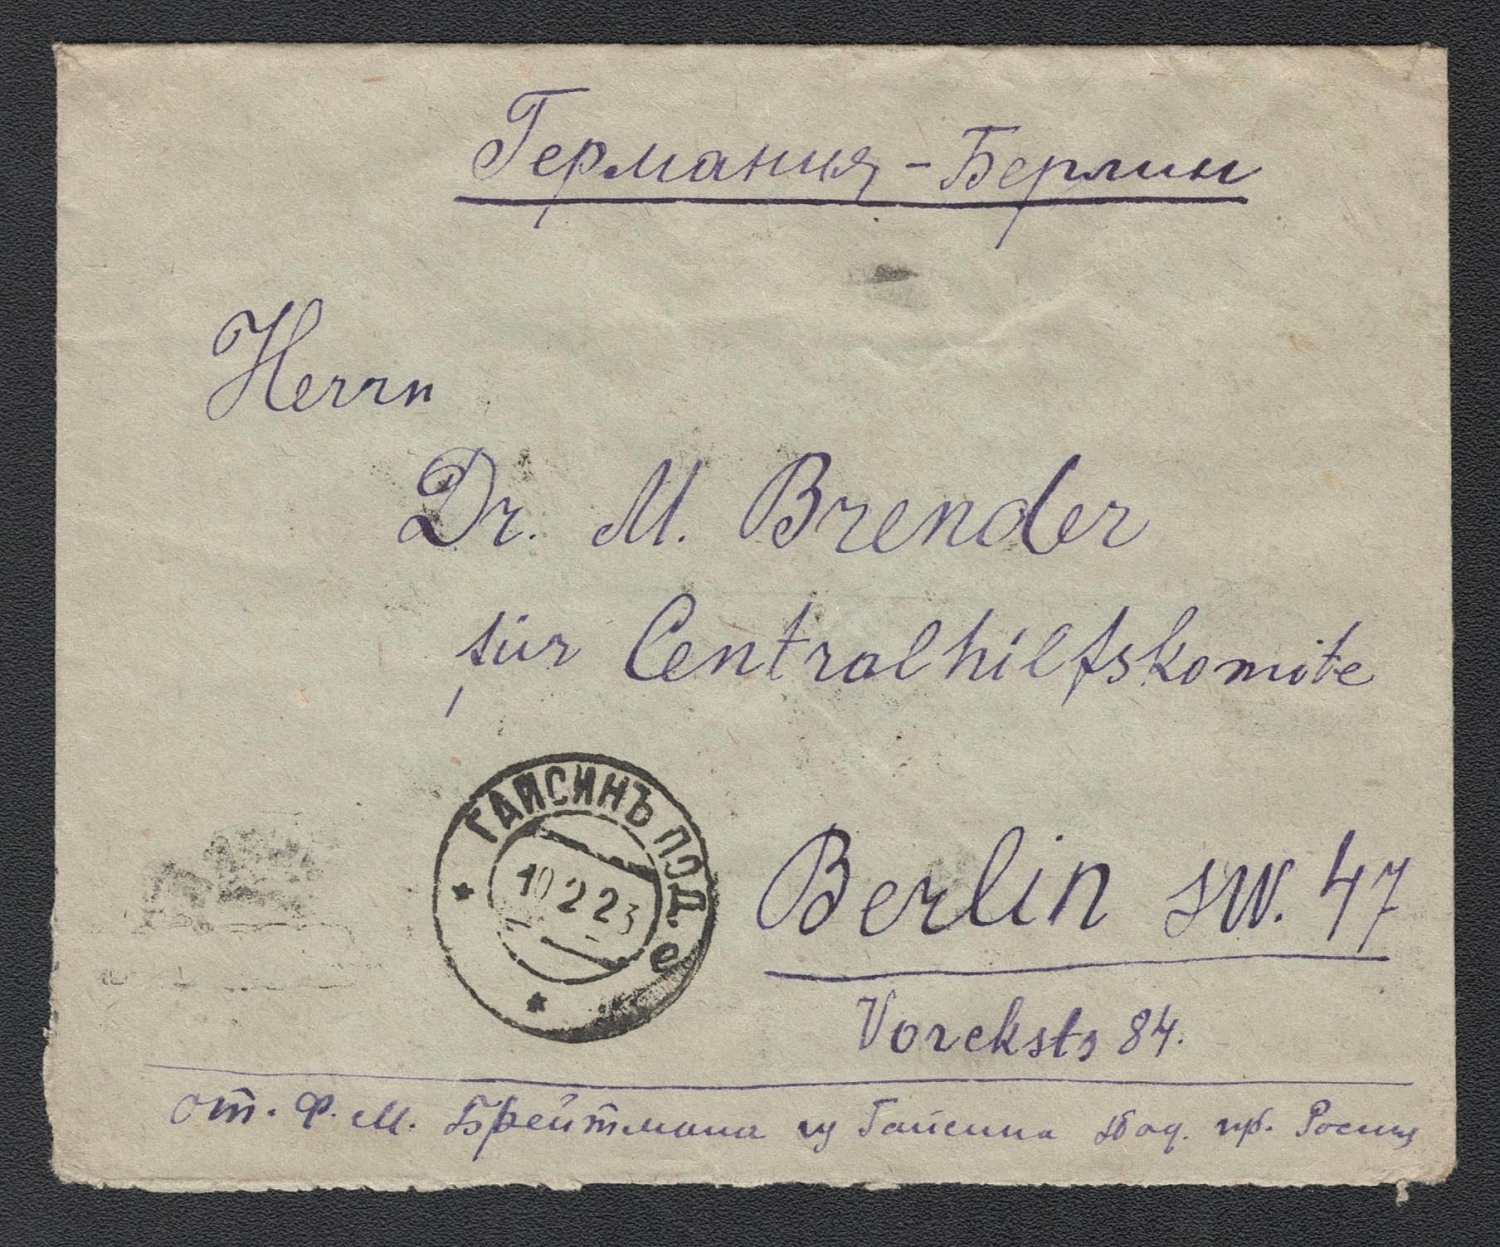 Германия - Берлин
Herrn
Dr. M. Brender
für Centralhilfskomite
ГАЙСИНЪ ПОД. е
10 2 23
Berlin SW. 47
Vorcksts 84.
от. Ф. М. Брейтмана из Гайсина Под. гб. России